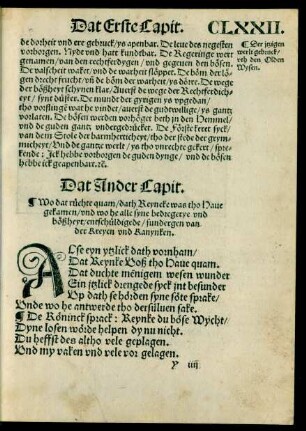 Dat Erste Capit. CLXXII.
de dorheit vnd ere gebruck/ys apenbar. De leue des negesten
vorborgen. Nydt vnd hatt kundtbar. De Regeringe wert
genamen/van den rechtferdygen/vnd gegeuen den bösen.
De valscheit waket/vnd de warheit slöpper. De böm der lö-
gen drecht frucht/vñ de böm der warheit/ys dörre. De wege
der bößheyt schynen klar/Auerst de wege der Rechtferdich-
eyt/synt düster. De mundt der gyrigen ys vpgedan/
tho vorslingē wat he vinder/auerst de gudtwelige/ys gantz
vorlaten. De bösen werden vorhöget beth in den Hemmel/
vnd de guden gantz vndergedrücket. De Förste keret syck/
van dem Stole der barmherticheyt/tho der stede der grym-
micheyt/Vnd de gantze werlt/ys tho vnrechte gekert/spre-
kende: Ick hebbe vorborgen de guden dynge/vnd de bösen
hebbe ick geapenbaret.ꝛc.
¶ Der ytzigen
werlt gebruck/
vth den Olden
Wysen.
Dat Ander Capit.
¶ Wo dat růchte quam/dath Reyncke was tho Haue
gekamen/vnd wo he alle syne bedregerye vnd
bößheyt/entschüldigede/sundergen van
der Kreyen vnd Kanynken.
Alse eyn ytzlick dath vornham/
Dat Reynke Voß tho Haue quam.
Dat duchte mēnigem wesen wunder
Ein ytzlick drengede syck int besunder
Vp dath se hörden syne söte sprake/
Vnde wo he antwerde tho dersüluen sake.
¶ De Köninck sprack: Reynke du böse Wycht/
Dyne losen wörde helpen dy nu nicht.
Du heffst des altho vele geplagen.
Vnd my vaken vnd vele vor gelagen.
Y iiij